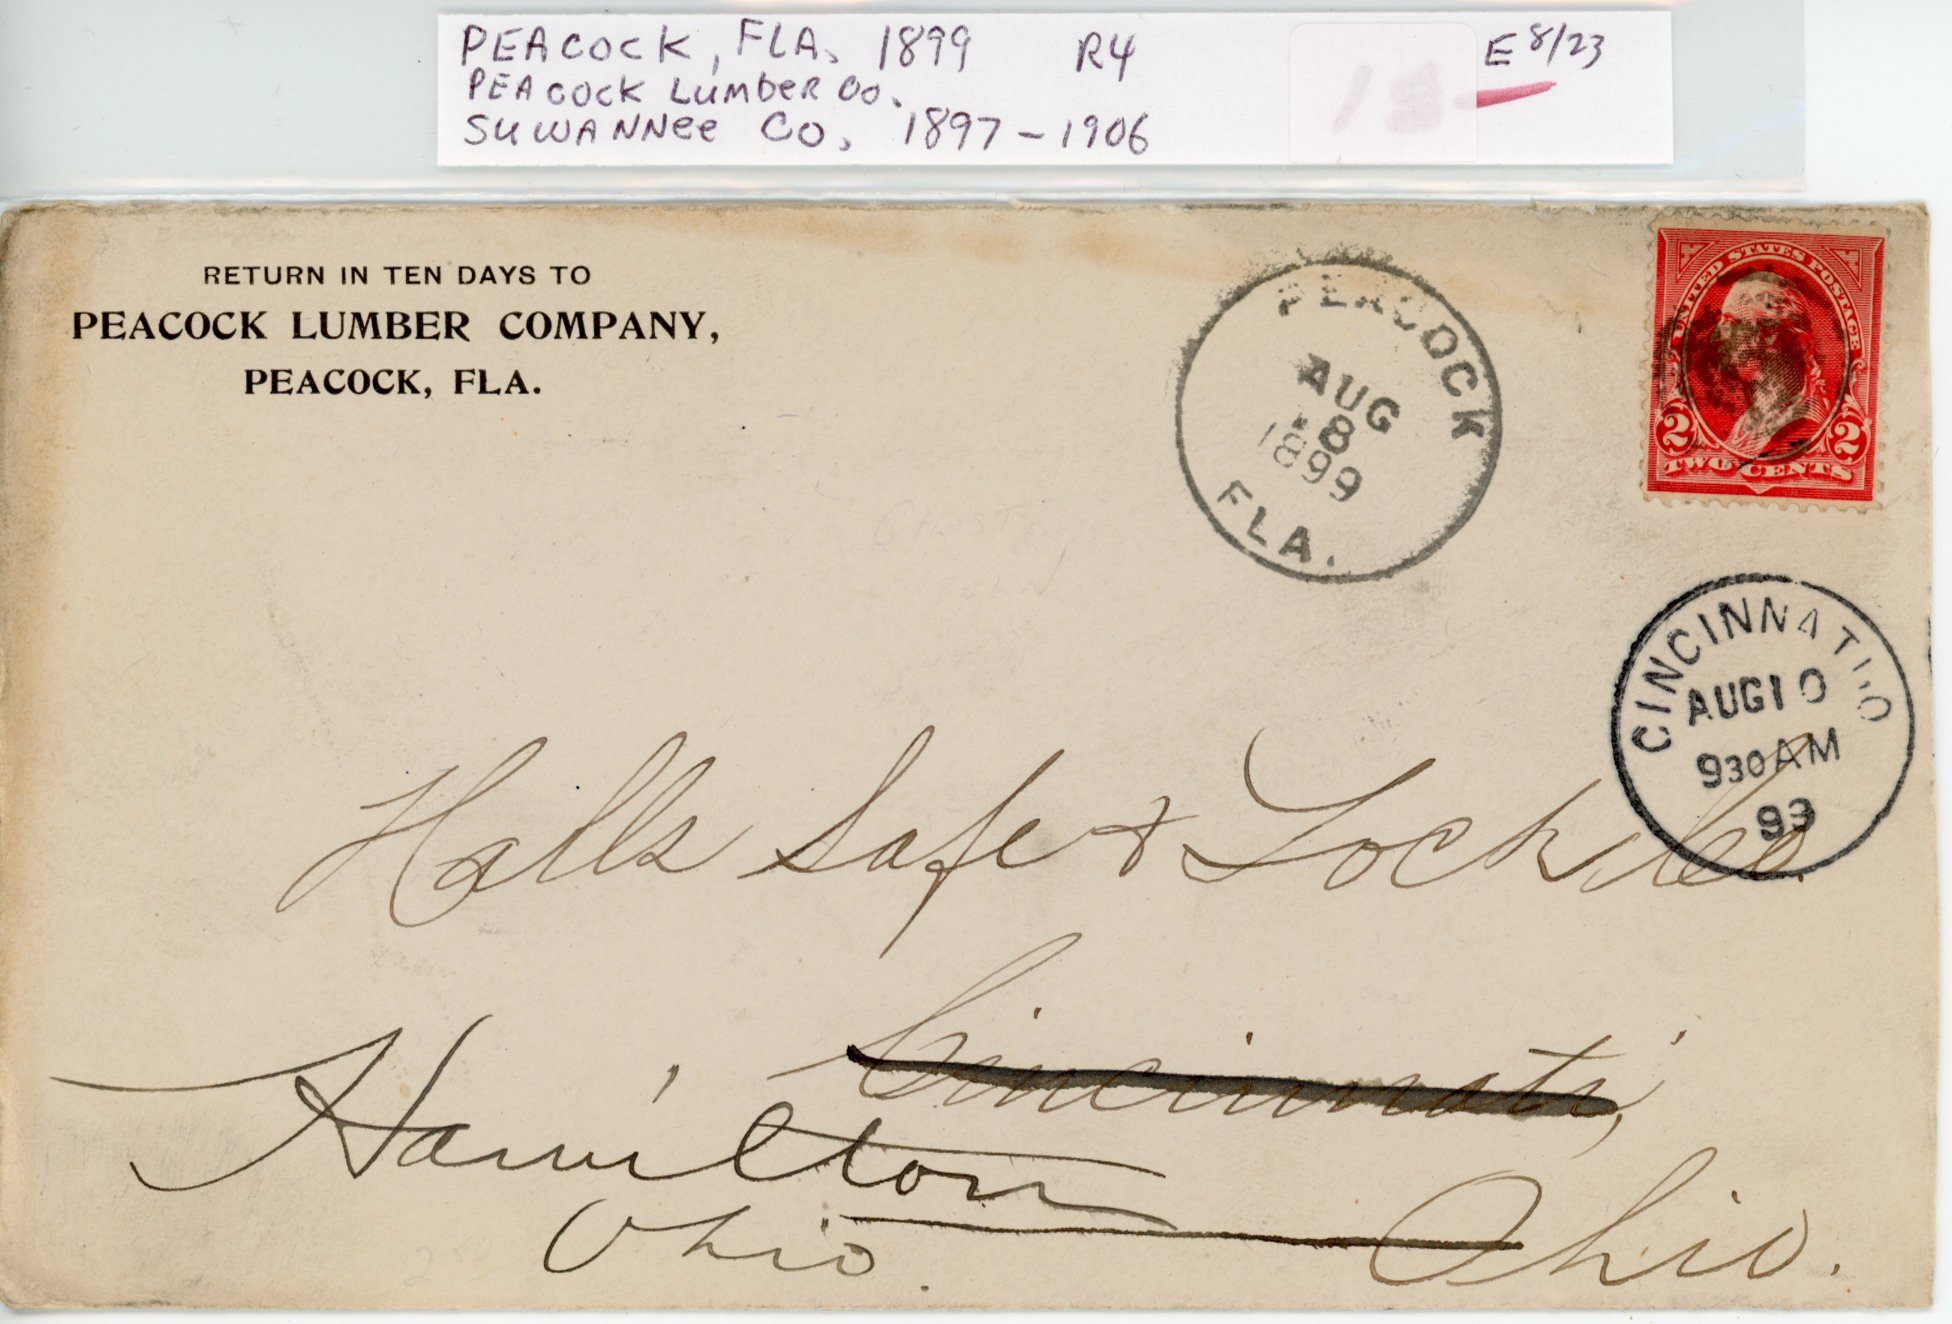 PEACOCK, FLA. 1899 R4 E 8/23
PEACOCK LUMBER CO.
SUWANNEE CO. 1897-1906
RETURN IN TEN DAYS TO
PEACOCK LUMBER COMPANY,
PEACOCK, FLA.
PEACOCK
AUG
8
1899
FLA.
UNITED STATES POSTAGE
2 2
TWO CENTS
CINCINNATI O
AUG 10
930 AM
99
Halls Safe & Lock Co.
Cincinnati,
Hamilton
Ohio.
Ohio.